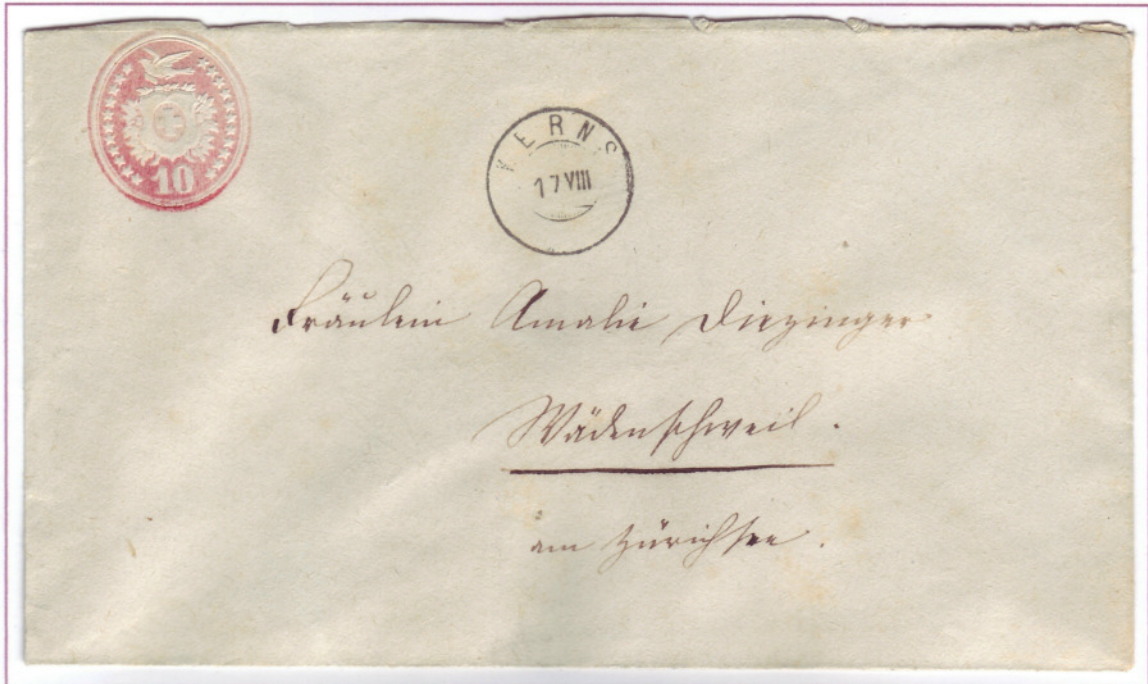 10
KERNS
17 VIII
Fräulein Amalie Diezinger
Wädenschweil.
am Zürichsee.